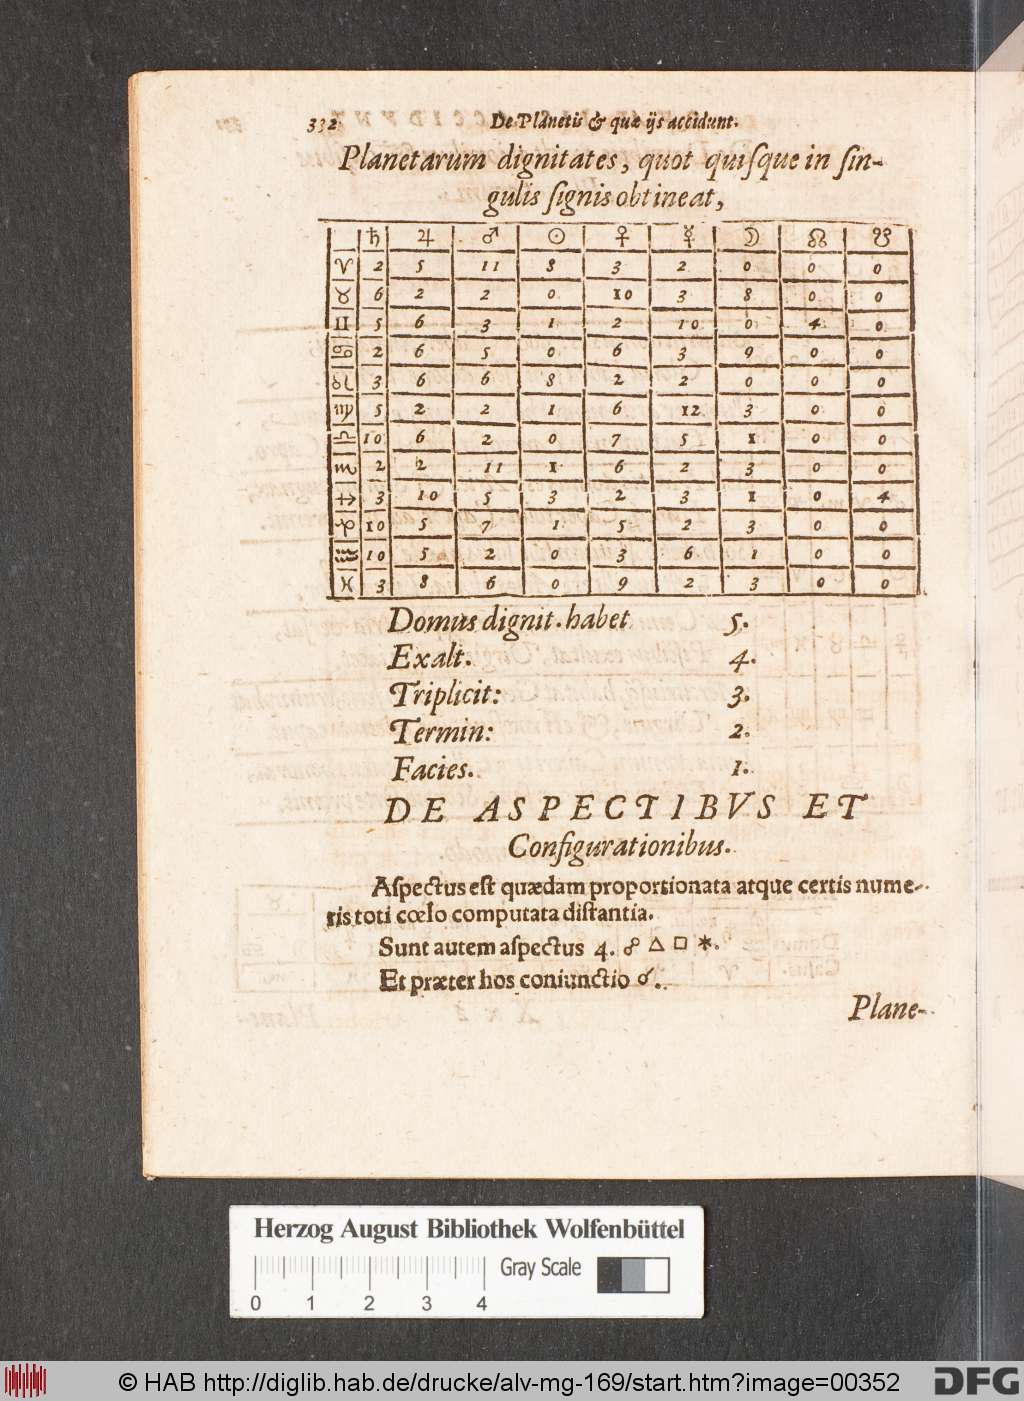 332 De Planetis & quæ ijs accidunt.
Planetarum dignitates, quot quiſque in ſin-
gulis ſignis obtineat,
♄ ♃ ♂ ☉ ♀ ☿ ☽ ☊ ☋
♈ 2 5 11 8 3 2 0 0 0
♉ 6 2 2 0 10 3 8 0 0
♊ 5 6 3 1 2 10 0 4 0
♋ 2 6 5 0 6 3 9 0 0
♌ 3 6 6 8 2 2 0 0 0
♍ 5 2 2 1 6 12 3 0 0
♎ 10 6 2 0 7 5 1 0 0
♏ 2 2 11 1 6 2 3 0 0
♐ 3 10 5 3 2 3 1 0 4
♑ 10 5 7 1 5 2 3 0 0
♒ 10 5 2 0 3 6 1 0 0
♓ 3 8 6 0 9 2 3 0 0
Domus dignit. habet 5.
Exalt. 4.
Triplicit: 3.
Termin: 2.
Facies. 1.
DE ASPECTIBVS ET
Configurationibus.
Aſpectus eſt quædam proportionata atque certis nume-
ris toti cœlo computata diſtantia.
Sunt autem aſpectus 4. ☍ △ □ ⚹.
Et præter hos coniunctio ☌.
Plane-
Herzog August Bibliothek Wolfenbüttel
Gray Scale
0 1 2 3 4
© HAB http://diglib.hab.de/drucke/alv-mg-169/start.htm?image=00352
DFG